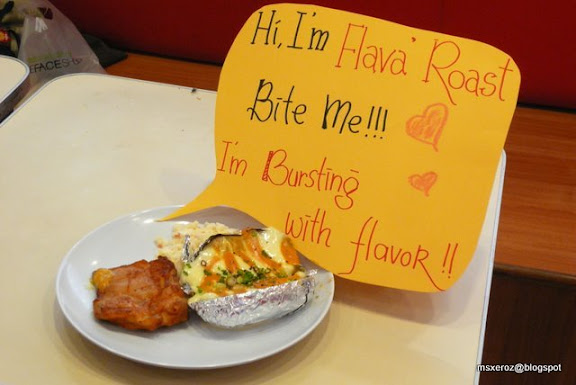 Hi, I'm Flava' Roast
Bite Me!!!
I'm Bursting
with flavor!!
FACESHOP
msxeroz@blogspot